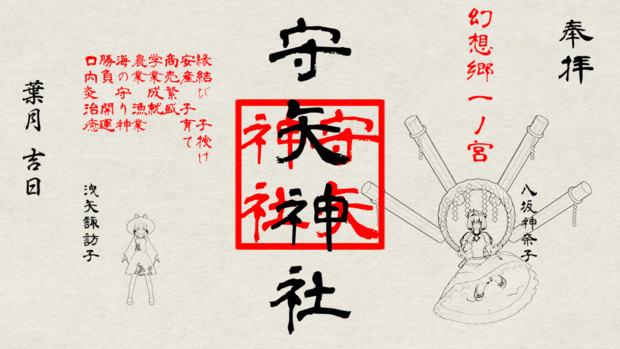 奉拝
幻想郷一ノ宮
八坂神奈子
守矢神社
守矢神社
縁結び 子授け
安産 子育て
商売繁盛
学業成就
農業 漁業
海の守り神
勝負 開運
口内炎治癒
洩矢諏訪子
葉月 吉日